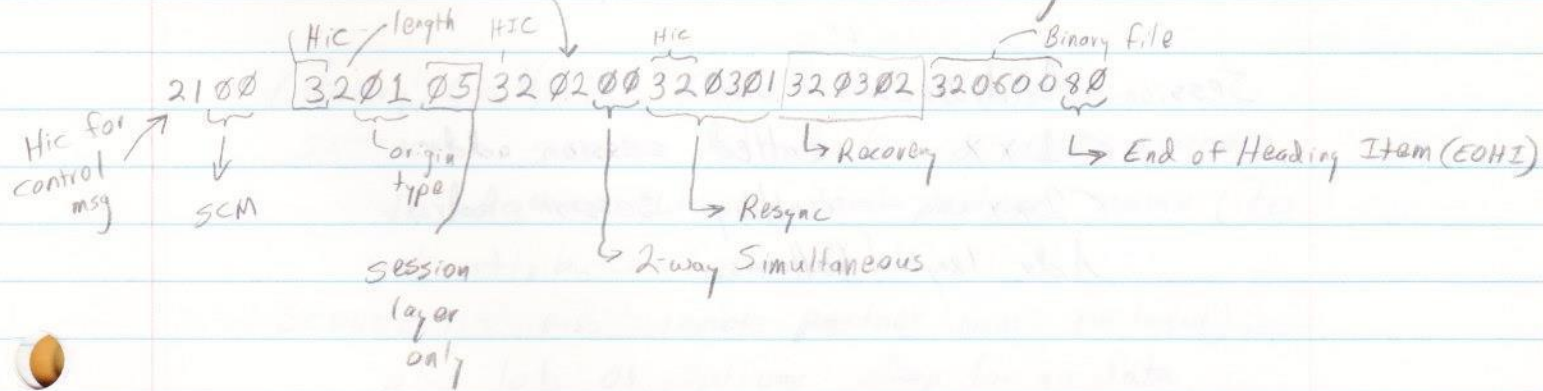 HiC length HIC Hic Binary file
21ØØ 32Ø1 Ø5 32Ø2ØØ 32Ø3Ø1 32Ø3Ø2 32Ø6ØØ8Ø
Hic for
control
msg
SCM
origin
type
session
layer
only
2-way Simultaneous
Resync
Recovery
End of Heading Item (EOHI)